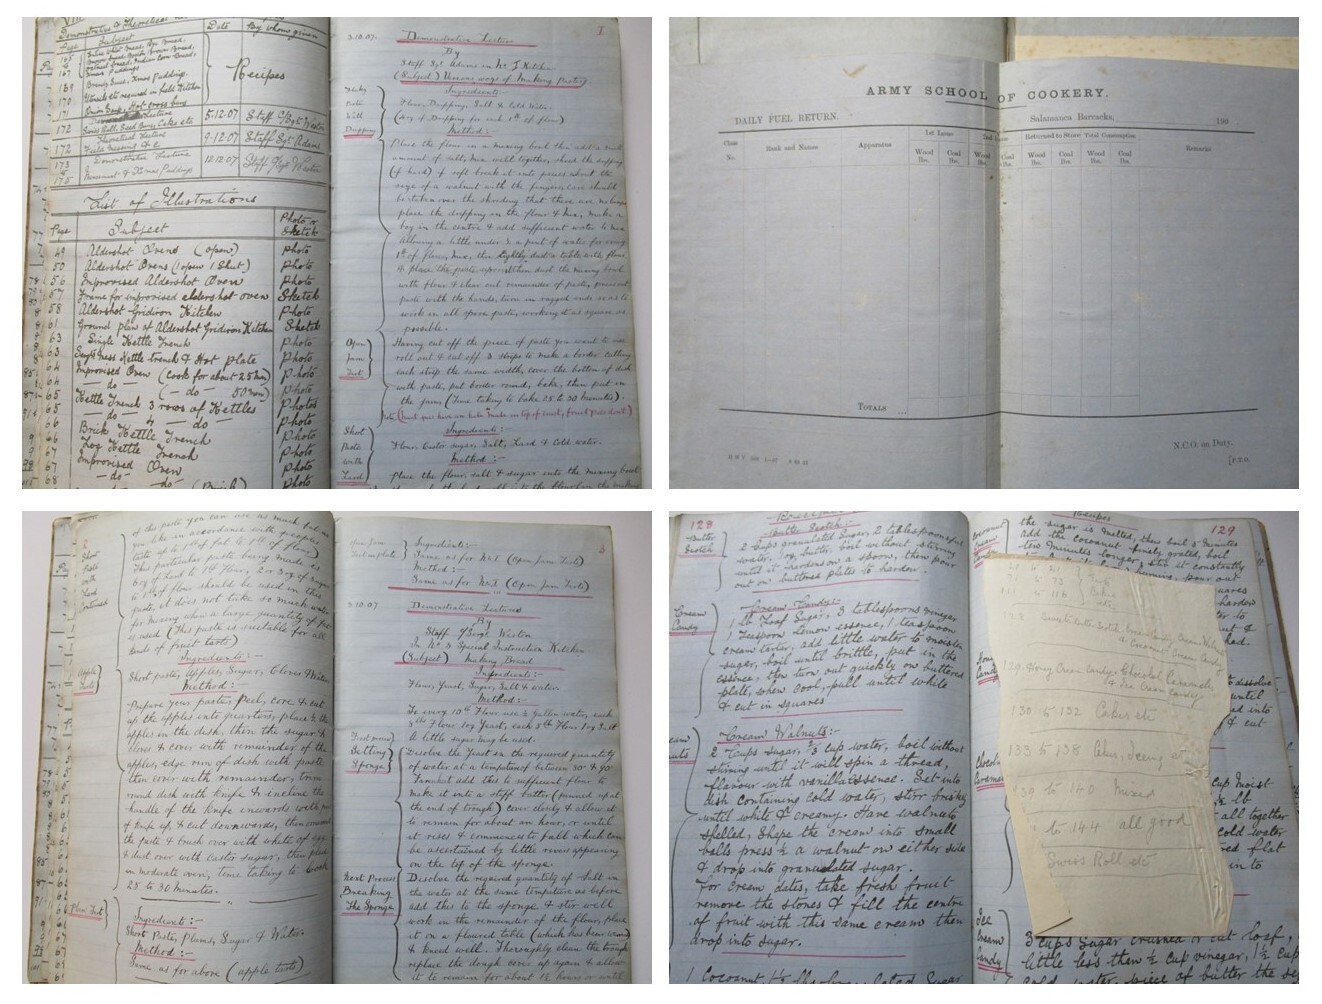 Demonstrative & Theoretical
Page
Subject
Date
By whom given
Recipes
167
169
170
171
Hot cross buns
172
Swiss Roll, Seed Buns, Cake etc
5.12.07
Staff S/Sgt Weston
Theoretical Lecture
172
9.12.07
Staff Sgt Adams
173
Demonstrative Lecture
175
& Xmas Puddings
12.12.07
Staff S/Sgt Weston
List of Illustrations
Page
Subject
Photo or
Sketch
49 Aldershot Ovens (open) Photo
50 Aldershot Ovens (1 open 1 Shut) Photo
56 Improvised Aldershot Oven Photo
57 Frame for improvised aldershot oven Sketch
58 Aldershot Gridiron Kitchen Photo
61 Ground plan of Aldershot Gridiron Kitchen Sketch
63 Single Kettle Trench Photo
63 Kettle trench & Hot plate Photo
64 Improvised Oven (Cook for about 25 men) Photo
64 — do — (— do — 50 men) Photo
65 Kettle Trench 3 rows of Kettles Photos
65 — do — 4 — do — Photo
66 Brick Kettle Trench Photo
66 Log Kettle Trench Photo
67 Improvised Oven Photo
67 — do — Photo
1
3.10.07. Demonstrative Lecture
By
Staff Sgt Adams in No 3 Kitchen
(Subject) Various ways of Making Pastry.
Ingredients:—
Flour, Dripping, Salt & Cold Water.
With
Dripping
Method:—
Place the flour in a mixing bowl then add a small
amount of salt, mix well together, shred the dripping
(if hard) if soft break it into pieces about the
size of a walnut with the fingers, care should
be taken over the shredding that there are no lumps
place the dripping on the flour & mix, make a
bay in the centre & add sufficient water to mix
allowing a little under ½ a pint of water for every
1lb of flour, mix, then lightly dust a table with flour
& place the paste upon it then dust the mixing bowl
with flour & clear out remainder of paste, press out
paste with the hands, turn in ragged ends so as to
work in all spare paste, working it as square as
possible.
Open
Jam
Tart
Having cut off the piece of paste you want to use
roll out & cut off 3 strips to make a border cutting
each strip the same width, cover the bottom of dish
with paste, put border round, bake, then put in
the jam (Time taking to bake 25 to 30 minutes).
Short
Paste
with
Lard
Ingredients:—
Flour, Castor sugar, Salt, Lard & Cold water.
Method:—
Place the flour, salt & sugar into the mixing bowl
ARMY SCHOOL OF COOKERY.
DAILY FUEL RETURN.
Salamanca Barracks,
190
Class
No.
Rank and Names
Apparatus
1st Issue
2nd Issue
Returned to Store
Total Consumption
Remarks
Wood
lbs.
Coal
lbs.
Wood
lbs.
Coal
lbs.
Wood
lbs.
Coal
lbs.
Wood
lbs.
Coal
lbs.
TOTALS ...
N.C.O. on Duty.
[P.T.O.
2
Short
Paste
with
Lard
Continued
of the paste you can use as much fat as
you like in accordance with peoples
taste up to 1lb of fat to 1lb of flour)
This particular paste being made is
6oz of lard to 1lb flour, 2 or 3oz of sugar
to 1lb of flour should be used in this
paste, it does not take so much water
for mixing when a large quantity of fat
is used (This paste is suitable for all
kinds of fruit tarts)
Apple
Tarts
Ingredients:—
Short paste, Apples, Sugar, Cloves & Water
Method:—
Prepare your paste, Peel, core & cut
up the apples into quarters, place ½ the
apples in the dish, then the sugar &
cloves & cover with remainder of the
apples, edge rim of dish with paste
then cover with remainder, trim
round dish with knife & incline the
handle of the knife inwards with point
of knife up, & cut downwards, then ornament
the paste & brush over with white of egg
& dust over with castor sugar, then place
in moderate oven, time taking to cook
25 to 30 Minutes.
Plum Tart
Ingredients:—
Short Paste, Plums, Sugar & Water.
Method:—
Same as for above (apple tarts)
3
Ingredients:—
Same as for No 1 (Open Jam Tarts)
Method:—
Same as for No 1 (Open Jam Tarts)
3.10.07 Demonstrative Lectures
By
Staff S/Sergt Weston
In No 3 Special Instruction Kitchen
(Subject) Making Bread
Ingredients:—
Flour, Yeast, Sugar, Salt & water.
Method:—
To every 10lb Flour use ½ Gallon water, each
Flour 1oz Yeast, each 5lb Flour 1oz Salt
A little sugar may be used.
First process
Setting
Sponge
Disolve the Yeast in the required quantity
of water at a tempture between 80° & 90°
Farnheit add this to sufficient flour to
make it into a stiff batter (pinned up at
the end of trough) cover closely & allow it
to remain for about an hour, or until
it rises & commences to fall which can
be ascertained by little rivers appearing
on the top of the sponge.
Next Process
Breaking
The Sponge
Disolve the required quantity of Salt in
the water at the same tempture as before
add this to the sponge & stir well
work in the remainder of the flour, place
it on a floured table (which has been warm)
& knead well. Thoroughly clean the trough
replace the dough cover up again & allow
it to remain for about 1½ hours or until
128
Butter
Scotch
Butter Scotch:—
2 Cups granulated Sugar, 2 tablespoonful
water, 1oz butter, boil without stirring
until it hardens on a spoon, then pour
out on buttered plates to harden.
Cream
Candy
Cream Candy:—
1 lb Loaf Sugar, 3 tablespoons vinegar
1 Teaspoon lemon essence, 1 teaspoon
cream tartar, add little water to moisten
sugar, boil until brittle, put in the
essence, then turn out quickly on buttered
plate, when cool, pull until white
& cut in squares
Cream Walnuts:—
2 Cups Sugar, ⅔ cup water, boil without
stirring until it will spin a thread,
flavour with vanilla essence. Set into
dish containing cold water, stirr briskly
until white & creamy. Have walnuts
shelled, shape the cream into small
balls press ½ a walnut on either side
& drop into granulated sugar.
For cream dates, take fresh fruit
remove the stones & fill the centre
of fruit with this same cream then
drop into sugar.
Recipes
129
the sugar is melted, then boil 5 minutes
add the cocoanut finely grated, boil
ten minutes longer, stir it constantly
pour out
128
129 Honey Cream Candy, Chocolat Caramels
& Ice Cream Candy
130 to 132 Cakes etc
133 to 138 Cakes, Iceing
139 to 140 Mixed
to 144 all good
Swiss Roll etc
Ice
Cream
Candy
3 cups Sugar crushed or cut loaf,
little less then ½ cup vinegar, 1½ cup
cold water, piece of butter the